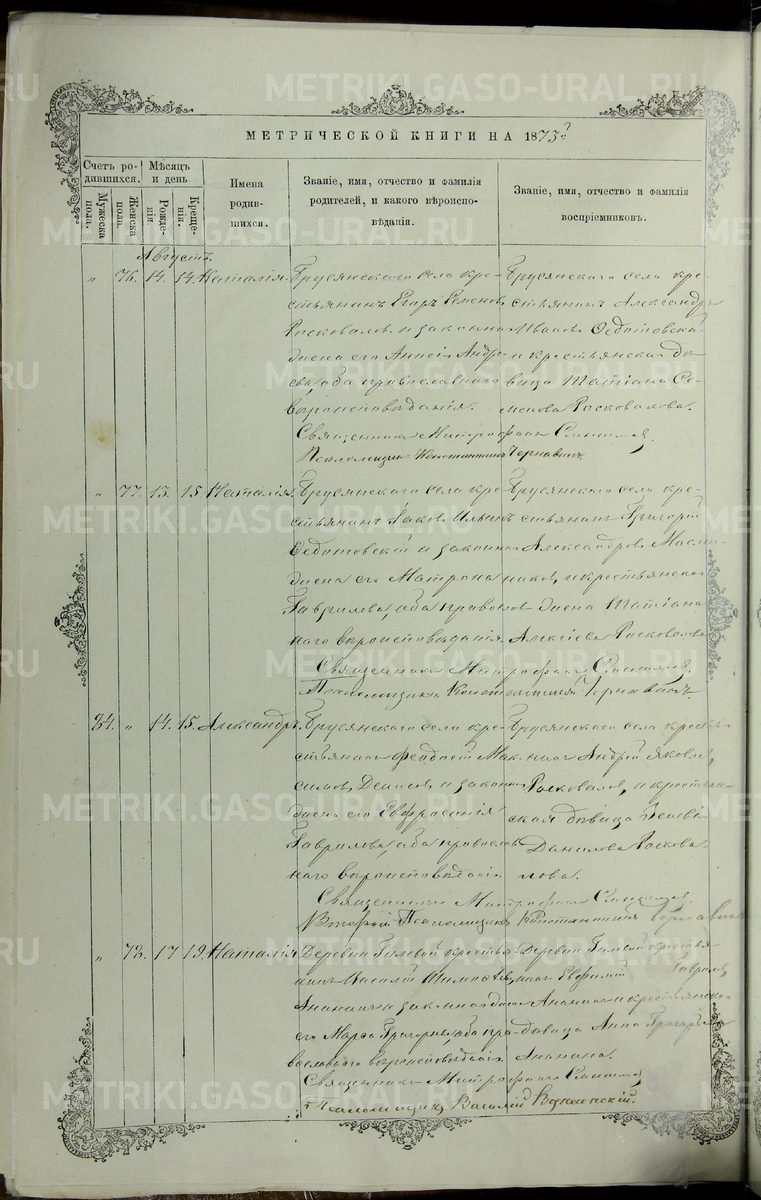 МЕТРИЧЕСКОЙ КНИГИ НА 1873
Счетъ родившихся.
Мужеска пола.
Женска пола.
Мѣсяцъ и день
Рожденія.
Крещенія.
Имена родившихся.
Званіе, имя, отчество и фамилія родителей, и какого вѣроисповѣданія.
Званіе, имя, отчество и фамилія воспріемниковъ.
Августъ.
" 76. 14. 14. Наталія.
Брусянскаго села кре-
стьянинъ Егоръ Семеновъ
Росковаловъ и законная
жена его Анисія Андре-
ева, оба православнаго
вѣроисповѣданія.
Брусянскаго села кре-
стьянинъ Александръ
Ивановъ Федотовскій
и крестьянская дѣ-
вица Татіана Се-
менова Росковалова.
Священникъ Митрофанъ
Псаломщикъ Константинъ Чернавинъ
" 77. 13. 15 Наталія.
Брусянскаго села кре-
стьянинъ Іаковъ Ильинъ
Федотовскій и законная
жена его Матрона
Гаврилова, оба православ-
наго вѣроисповѣданія.
Брусянскаго села кре-
стьянинъ Григорій
Александровъ
и крестьянская
жена Татіана
Алексіева Росковалова
Священникъ Митрофанъ
Псаломщикъ Константинъ Чернавинъ.
84. " 14. 15. Александръ.
Брусянскаго села кре-
стьянинъ Феодосій Мак-
симовъ Денисовъ и законная
жена его Евфросинія
Гаврилова, оба православ-
наго вѣроисповѣданія
Брусянскаго села крестья-
нинъ Андрей Яковлевъ
Росковаловъ, и крестьян-
ская дѣвица
Данилова Роскова-
лова.
Священникъ Митрофанъ
Второй Псаломщикъ Константинъ Чернавинъ
" 78. 17 19. Наталія
Деревни Гилевой крестья-
нинъ Василій
Ананьинъ и законная жена
его Марѳа Григорьева, оба пра-
вославнаго вѣроисповѣданія.
Деревни Гилевой крестья-
нинъ Евфимій Гавриловъ
Ананьинъ и крестьянская
дѣвица Анна Григорьева
Ананьина.
Священникъ Митрофанъ
Псаломщикъ Василій
METRIKI.GASO-URAL.RU